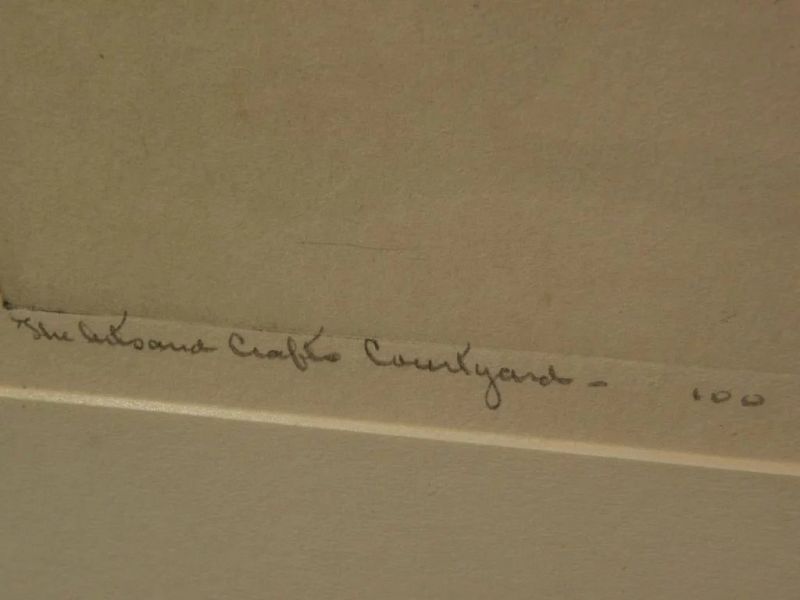 The Arts and Crafts Courtyard - 100